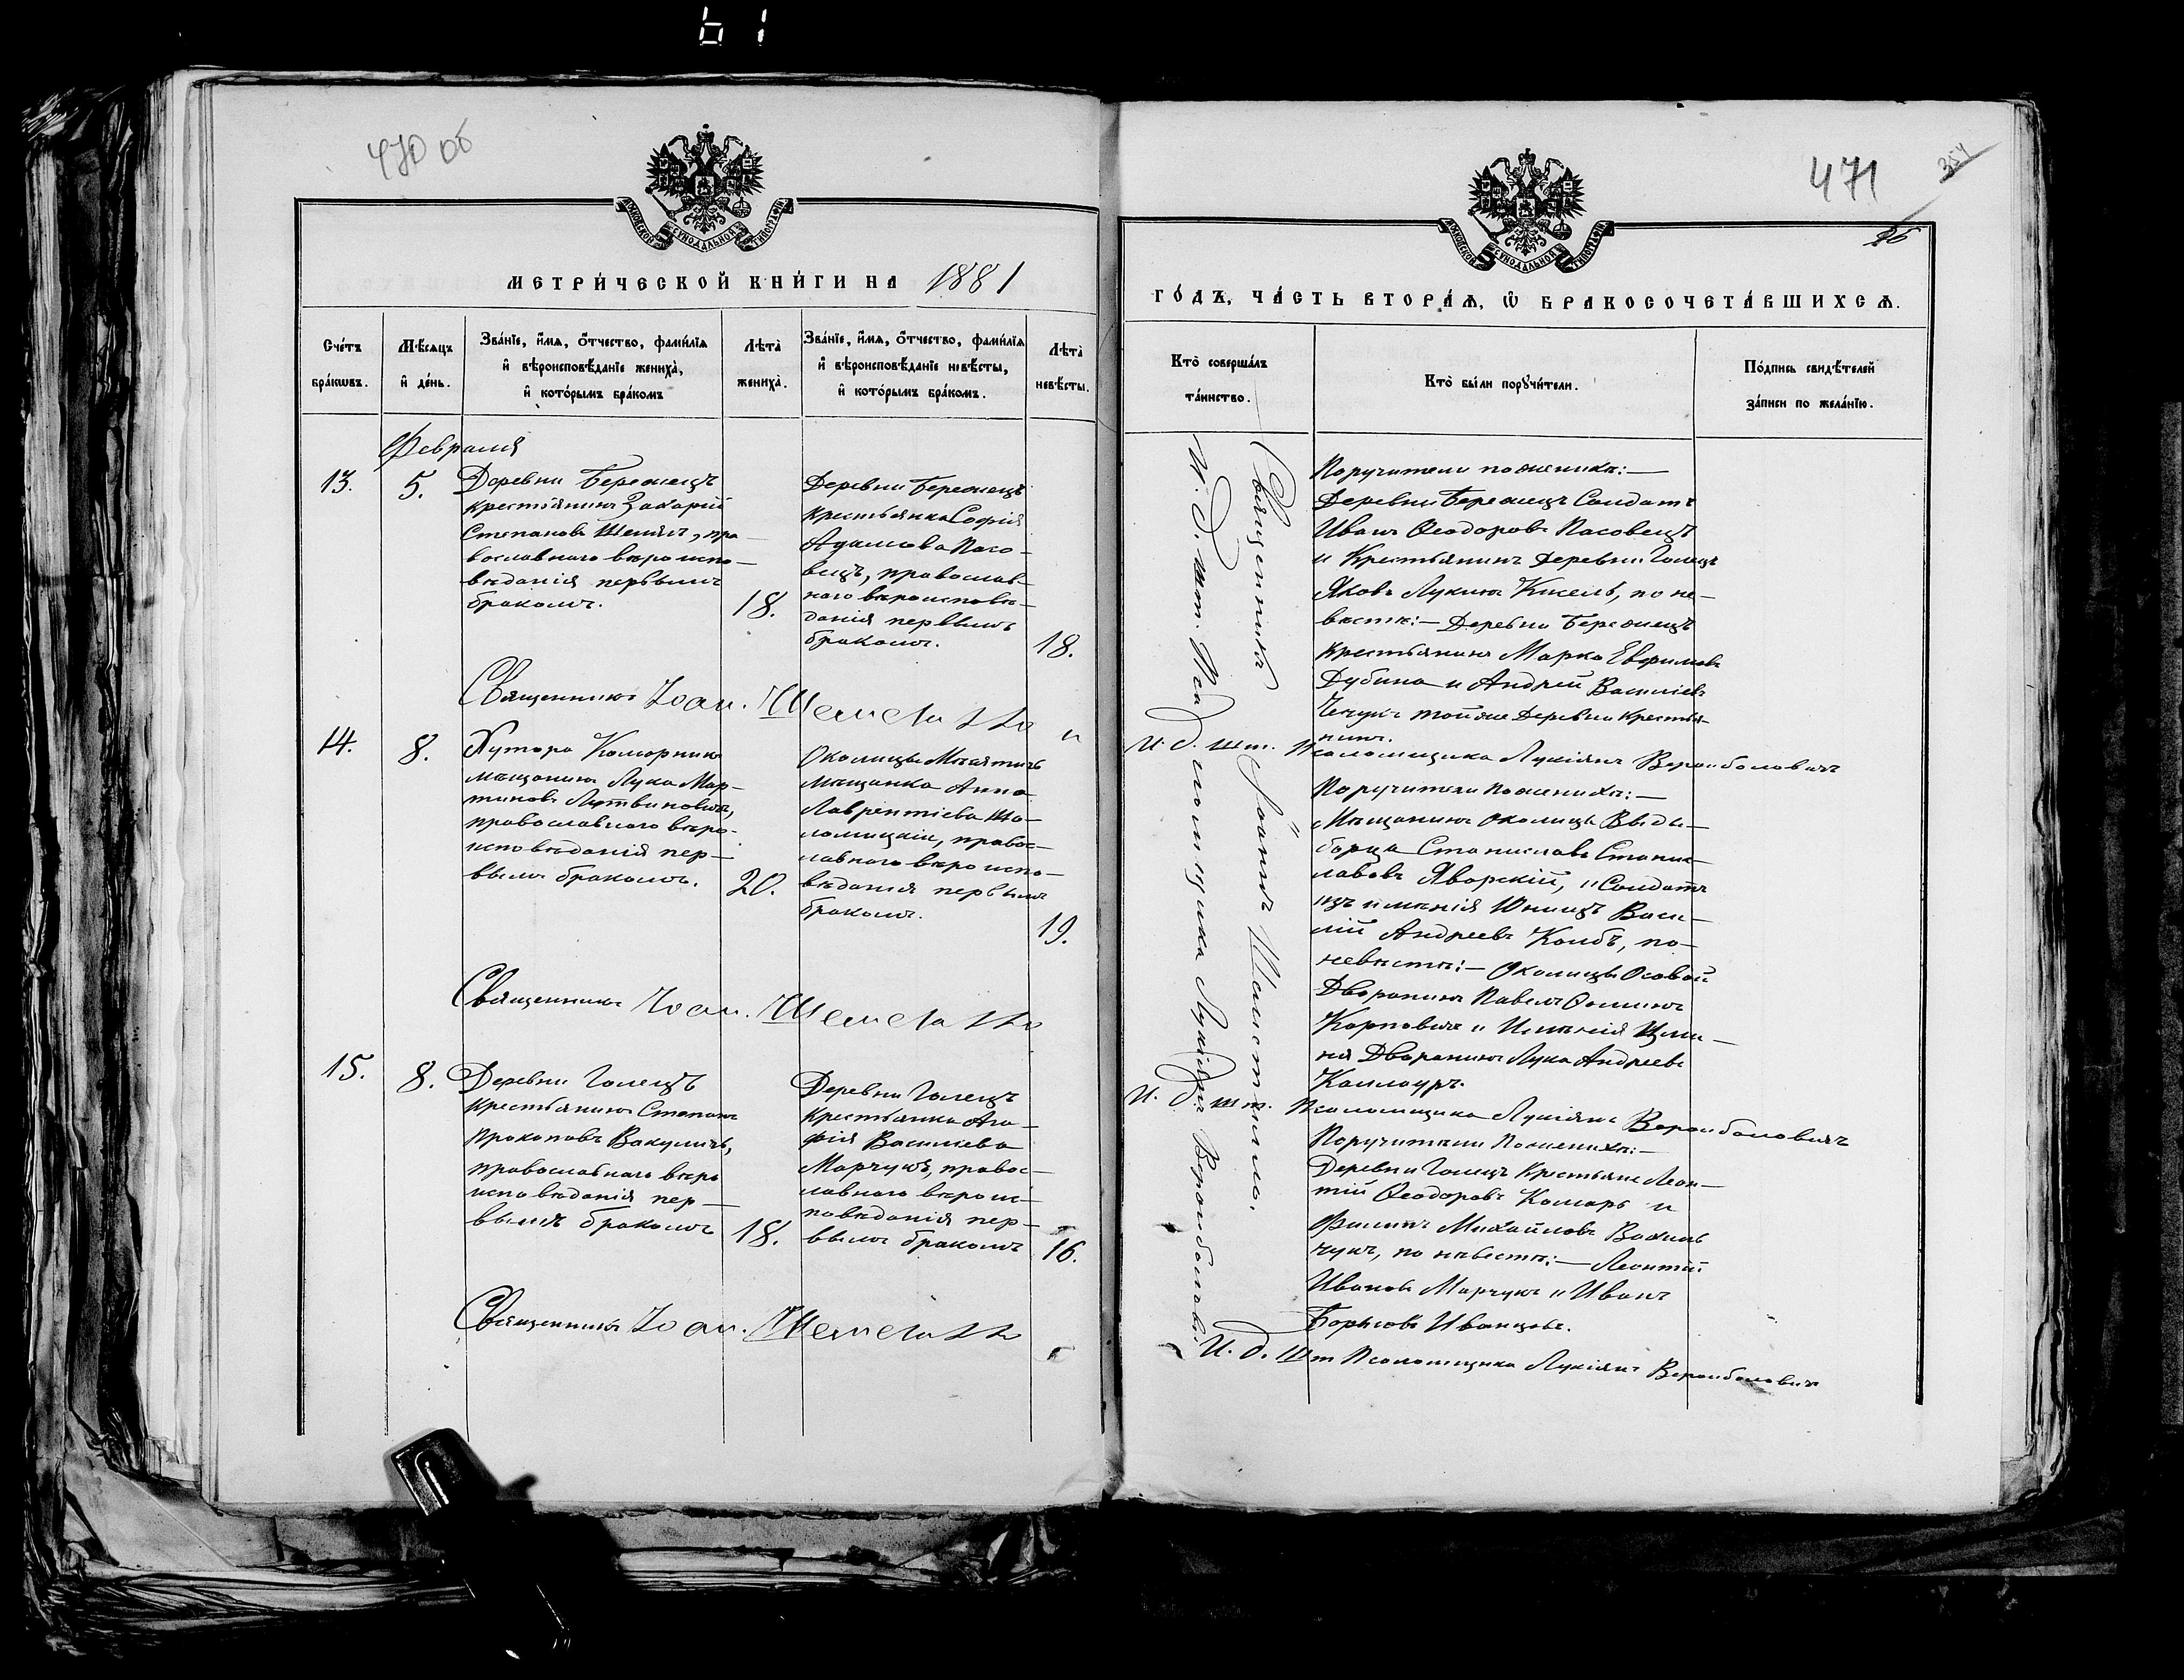 61
470 об
МЕТРИЧЕСКОЙ КНИГИ НА 1881
Счетъ браковъ.
Мѣсяцъ и день.
Званіе, имя, отчество, фамилія и вѣроисповѣданіе жениха, и которымъ бракомъ
Лѣта жениха.
Званіе, имя, отчество, фамилія и вѣроисповѣданіе невѣсты, и которымъ бракомъ.
Лѣта невѣсты.
Февраля
13.
5.
Деревни Бережецъ
крестьянинъ Захарій
Степановъ, пра-
вославнаго вѣроиспо-
вѣданія первымъ
бракомъ.
18.
Деревни Бережецъ
крестьянка Софія
Адамова Пасо-
вецъ, православ-
наго вѣроисповѣ-
данія первымъ
бракомъ.
18.
Священникъ Іоан.
14.
8.
Хутора Коморники
мѣщанинъ Лука Мар-
тиновъ Литвиновичъ,
православнаго вѣро-
исповѣданія пер-
вымъ бракомъ.
20.
Околицы
мѣщанка Анна
Лаврентіева
правос-
лавнаго вѣроиспо-
вѣданія первымъ
бракомъ.
19.
Священникъ Іоан.
15.
8.
Деревни Голецъ
крестьянинъ Степанъ
Прокоповъ Вакуличъ,
православнаго вѣро
исповѣданія пер-
вымъ бракомъ
18.
Деревни Голецъ
крестьянка Ага-
фія Василіева
Марчукъ, правос-
лавнаго вѣроис-
повѣданія пер-
вымъ бракомъ
16.
Священникъ Іоан.
471
354
ГОДЪ, ЧАСТЬ ВТОРАЯ, Ѡ БРАКОСОЧЕТАВШИХСЯ.
Кто совершалъ таинство.
Кто были поручители.
Подпись свидѣтелей записи по желанію.
Священникъ Іоаннъ
И. д. шт. Псаломщика Лукіянъ
Поручители по женихѣ:—
Деревни Бережецъ Солдатъ
Иванъ Ѳеодоровъ Пасовецъ
и Крестьянинъ Деревни Голецъ
Яковъ Лукинъ Кисель, по не-
вѣстѣ:— Деревни Бережецъ
крестьянинъ Марко Евфимовъ
Дубина и Андрей Василіевъ
тойже Деревни крестья-
нинъ.
И. д. шт. Псаломщика Лукіянъ
Поручители по женихѣ:—
Мѣщанинъ околицы
Станиславъ Станис-
лавовъ Яворскій, и Солдатъ
изъ имѣнія Васи-
лій Андреевъ Колбъ, по
невѣстѣ:— Околицы Осовой
Дворянинъ Павелъ Ѳоминъ
Карповичъ и Имѣнія
Дворянинъ Лука Андреевъ
И. д. шт. Псаломщика Лукіянъ
Поручители по женихѣ:—
Деревни Голецъ крестьяне Леон-
тій Ѳеодоровъ Комаръ и
Филипъ Михайловъ
по невѣстѣ:— Леонтій
Ивановъ Марчукъ и Иванъ
Борисовъ Иванцовъ.
И. д. шт Псаломщика Лукіянъ